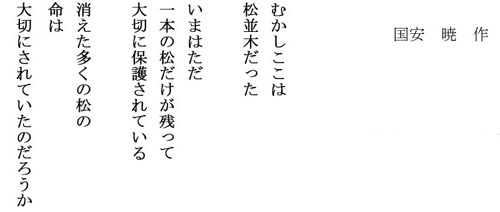 国安　暁　作
むかしここは
松並木だった
いまはただ
一本の松だけが残って
大切に保護されている
消えた多くの松の
命は
大切にされていたのだろうか